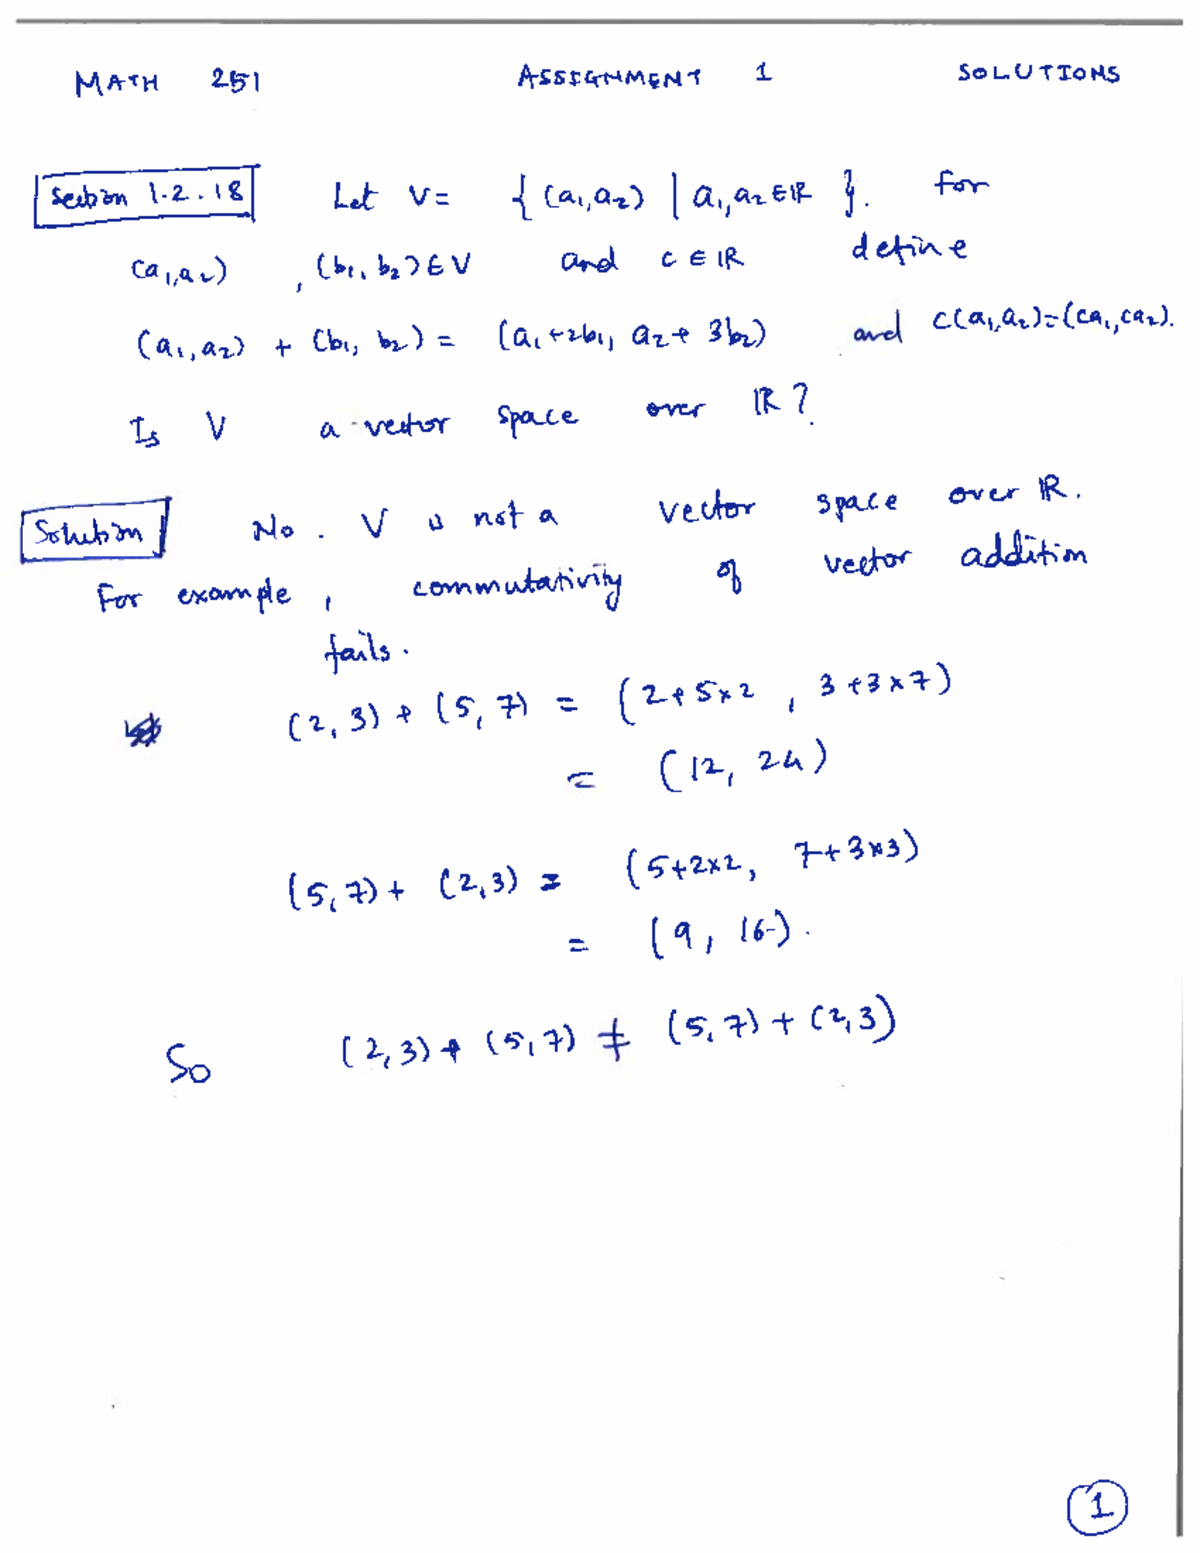 MATH 251 ASSIGNMENT 1 SOLUTIONS
Section 1.2.18 Let V = { (a₁,a₂) | a₁,a₂ ∈ ℝ }. For
(a₁,a₂) , (b₁, b₂) ∈ V and c ∈ ℝ define
(a₁,a₂) + (b₁, b₂) = (a₁+2b₁, a₂+ 3b₂) and c(a₁,a₂)=(ca₁,ca₂).
Is V a vector space over ℝ?
Solution No. V is not a vector space over ℝ.
For example, commutativity of vector addition
fails.
(2, 3) + (5, 7) = (2+5×2 , 3+3×7)
= (12, 24)
(5,7) + (2,3) = (5+2×2, 7+3×3)
= (9, 16).
So (2,3) + (5,7) ≠ (5,7) + (2,3)
1